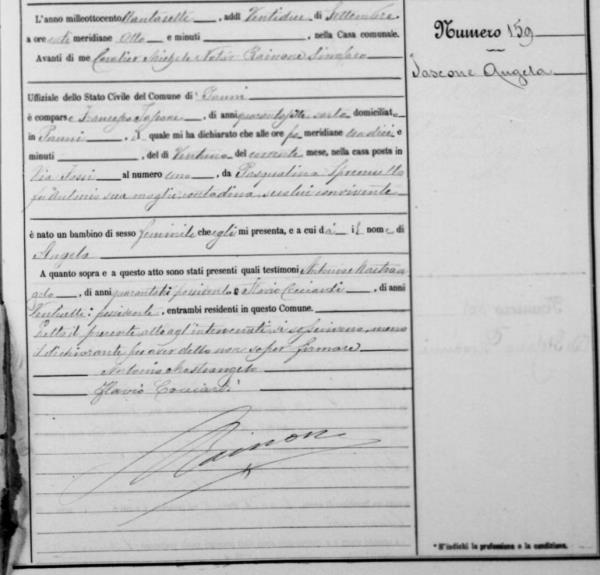 L'anno milleottocento Nantasette, addì Ventidue di Settembre
a ore ante meridiane Otto e minuti, nella Casa comunale.
Avanti di me Cavalier Michele Notar Rainone Sindaco
Uffiziale dello Stato Civile del Comune di Panni
è comparso Francesco, di anni quarantasette sarto domiciliato
in Panni, il quale mi ha dichiarato che alle ore po meridiane undici e
minuti, del dì Ventuno del corrente mese, nella casa posta in
Via al numero uno, da Pasqualina
fu Antonio sua moglie contadina seco lui convivente
è nato un bambino di sesso feminile che egli mi presenta, e a cui dà il nome di
Angela
A quanto sopra e a questo atto sono stati presenti quali testimoni Antonio Mastroan
gelo, di anni possidente e Flavio Cocciardi, di anni
possidente, entrambi residenti in questo Comune.
Letto il presente atto agl'intervenuti si sottoscrivono, meno
il dichiarante per aver detto non saper firmare
Antonio Mastrangelo
Flavio Cocciardi
Rainon
Numero 159
Angela
* S'indichi la professione o la condizione.